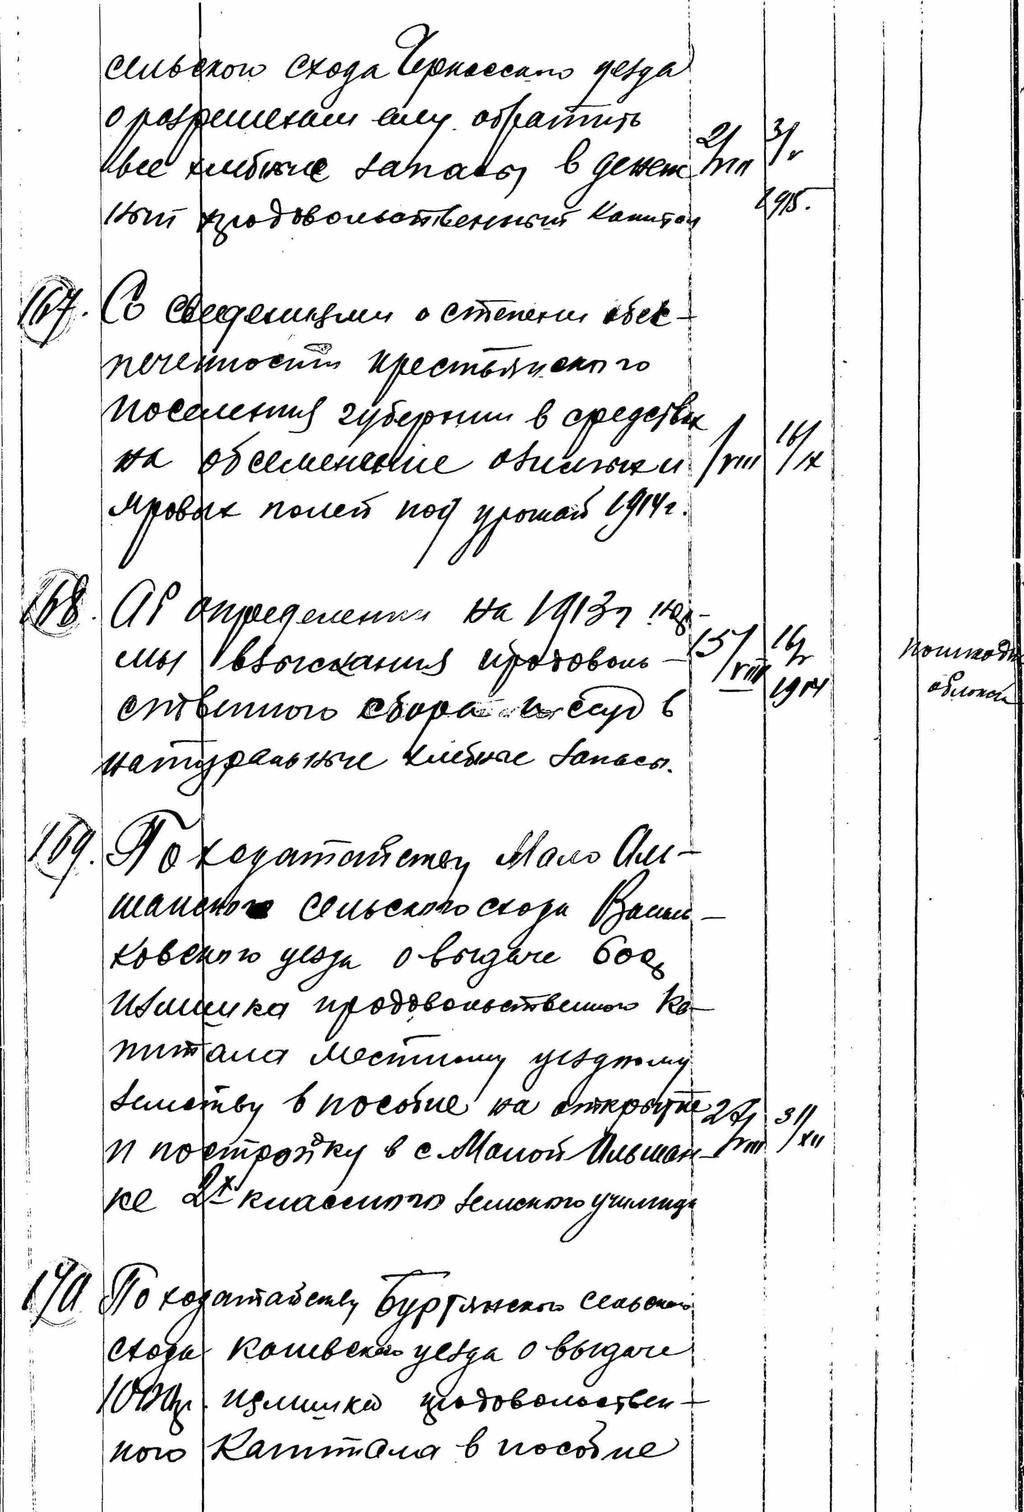 сельского схода Черкасского уезда
о разрешении ему обратить
все хлебные запасы в денеж 2/VII 3/V
ный продовольственный капитал 1915.
167. Со сведениями о степени обес-
печенности крестьянского
поселения губернии в средствах
на обсеменение озимых и 1/VIII 16/IX
яровых полей под урожай 1914 г.
168. Об определении на 1913 г нор-
мы взыскания продоволь- 15/VIII 16/V 1914
ственного сбора и ссуд в
натуральные хлебные запасы.
169. По ходатайству Мало Оль-
шанского сельского схода Василь-
ковского уезда о выдаче 600 р
излишка продовольственного ка-
питала местному уездному
земству в пособие на открытие 27/VIII 31/XII
и постройку в с. Малой Ольшан-
ке 2х классного земского училища
170 По ходатайству Буртянского сельского
схода Киевского уезда о выдаче
1000 р. излишка продовольствен-
ного капитала в пособие